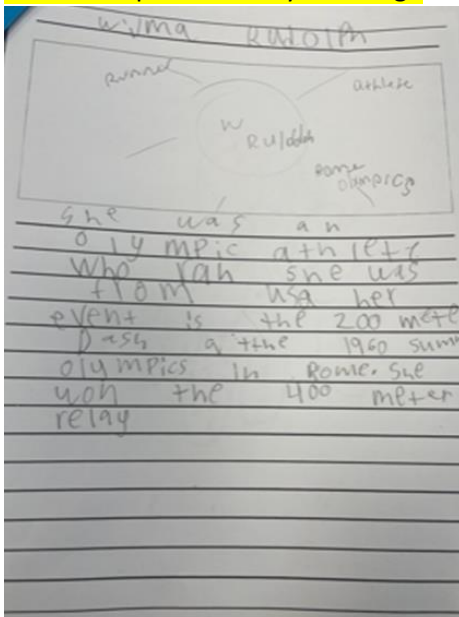 Wilma Rudolph
Runner
athlete
W
Ruldolph
Rome
Olympics
she was an
olympic athlete
who ran she was
from usa her
event is the 200 mete
Dash at the 1960 sum
olympics in Rome. She
won the 400 meter
relay